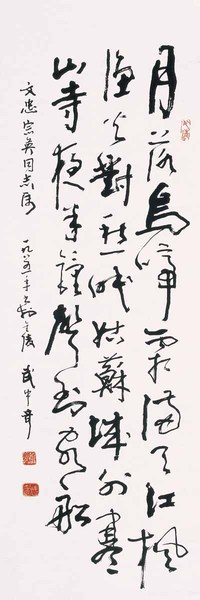 月落烏啼霜滿天江楓
漁火對愁眠姑蘇城外寒
山寺夜半鐘聲到客船
文忠宗英同志属
一九八五年 金陵 武中奇